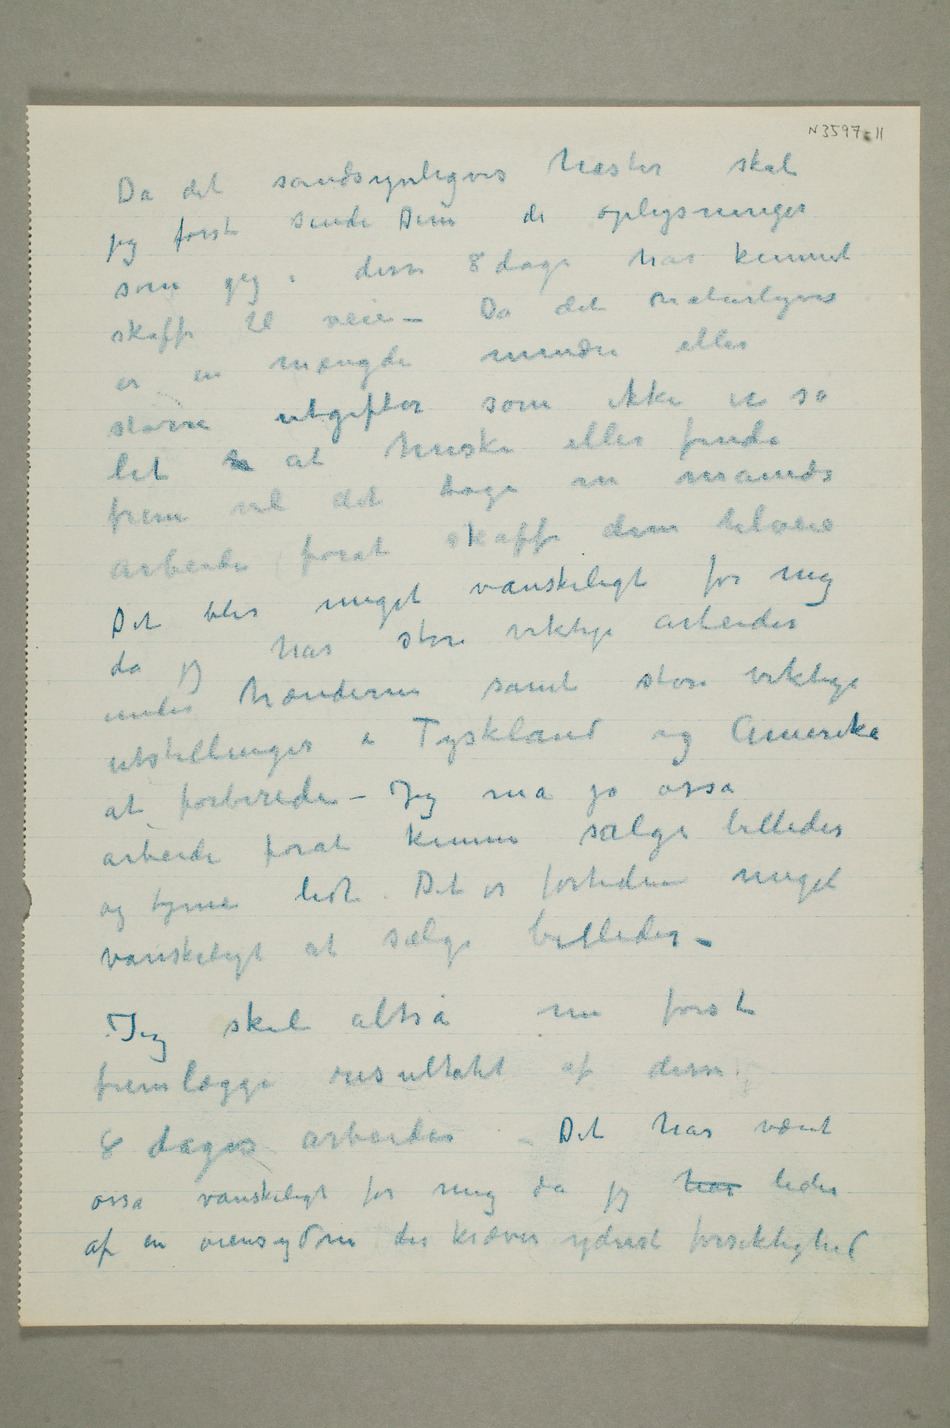 N3597-11
Da det sandsynligvis haster skal
jeg først sende Dem de oplysninger
som jeg i disse 8 dage har kunnet
skaffe til veie – Da det naturligvis
er en mængde mindre eller
større utgifter som ikke er så
let at huske eller finde
frem vil det tage en mands
arbeide forat skaffe dem tilveie
Det blir meget vanskeligt for mig
da jeg har store viktige arbeider
under hænderne samt store viktige
utstillinger i Tyskland og Amerika
at forberede – Jeg må jo osså
arbeide forat kunne sælge billeder
og tjene lidt. Det er fortiden meget
vanskeligt at sælge billeder –
Jeg skal altså nu først
fremlægge resultatet af disse
8 dages arbeider – Det har vært
osså vanskeligt for mig da jeg har lider
af en øiensygdom der kræver yderst forsiktighed